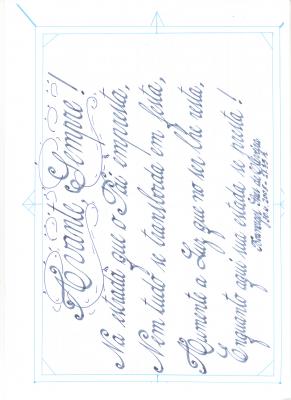 Avante, Sempre!
Na estrada que o Pai empresta,
Nem tudo se transborda em festa,
Aumente a Luz que no ser lhe resta,
Enquanto aqui sua estada se presta!